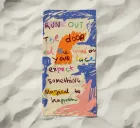 RUN OUT OF
the door
and
your face
expect
something
Magical to
happen